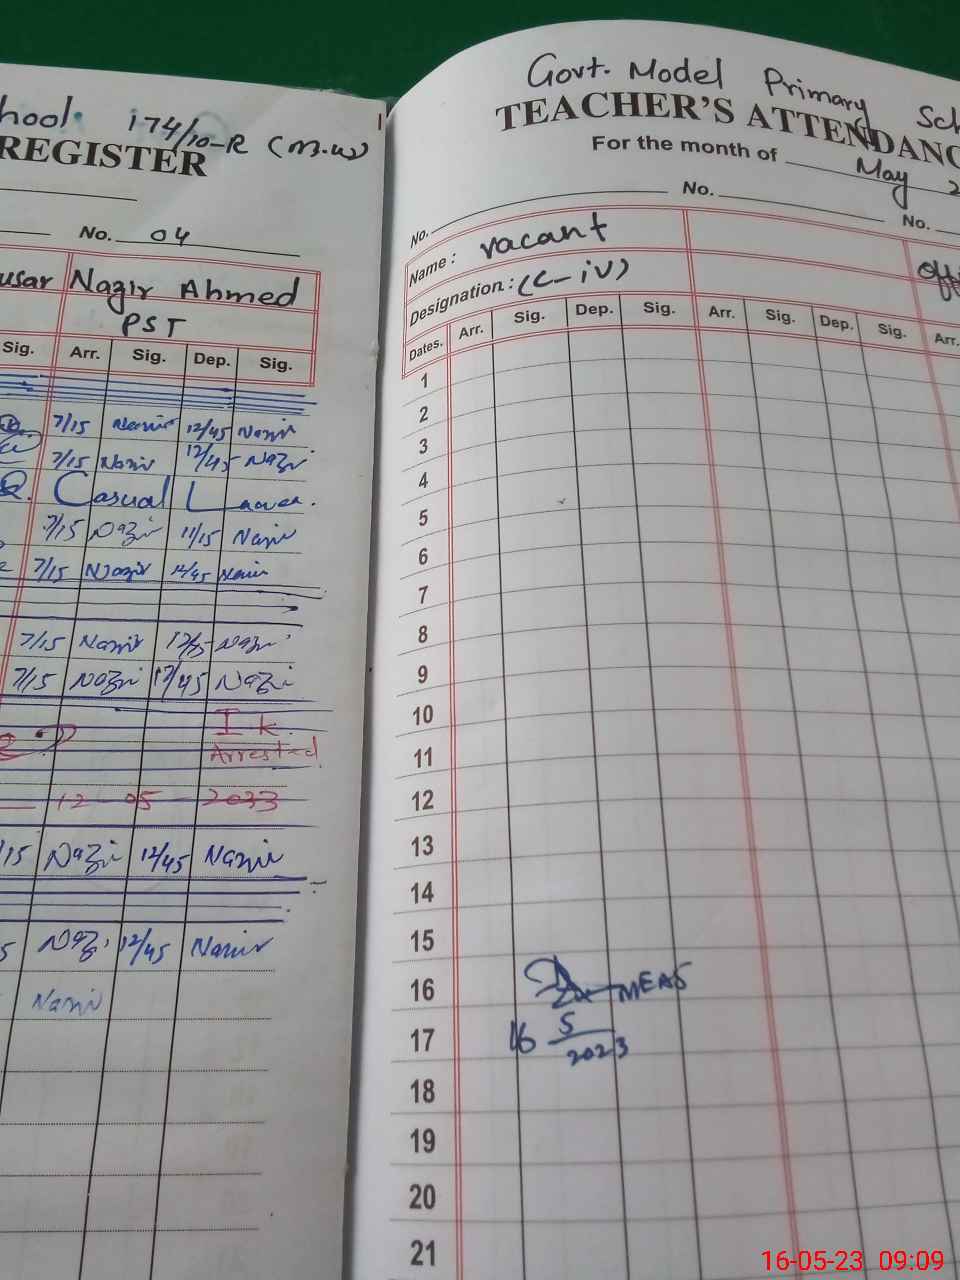 hool. 174/10-R (M.W)
REGISTER
No. 04
usar Nazir Ahmed
PST
Sig. Arr. Sig. Dep. Sig.
7/15 Nazir 12/45 Nazir
7/15 Nazir 12/45 Nazir
Casual Leave.
7/15 Nazir 11/15 Nazir
7/15 Nazir 12/45 Nazir
7/15 Nazir 12/45 Nazir
7/15 Nazir 12/45 Nazir
I.k
Arrested
12 - 05 - 2023
/15 Nazir 12/45 Nazir
5 Naz. 12/45 Nazir
Nazir
Govt. Model Primary Sch
TEACHER'S ATTENDANC
For the month of May 2
No. No. No.
Name: vacant
Designation: (C-iV)
Dates. Arr. Sig. Dep. Sig. Arr. Sig. Dep. Sig. Arr.
1
2
3
4
5
6
7
8
9
10
11
12
13
14
15
16 MEAS
17 16 5
2023
18
19
20
21
16-05-23 09:09